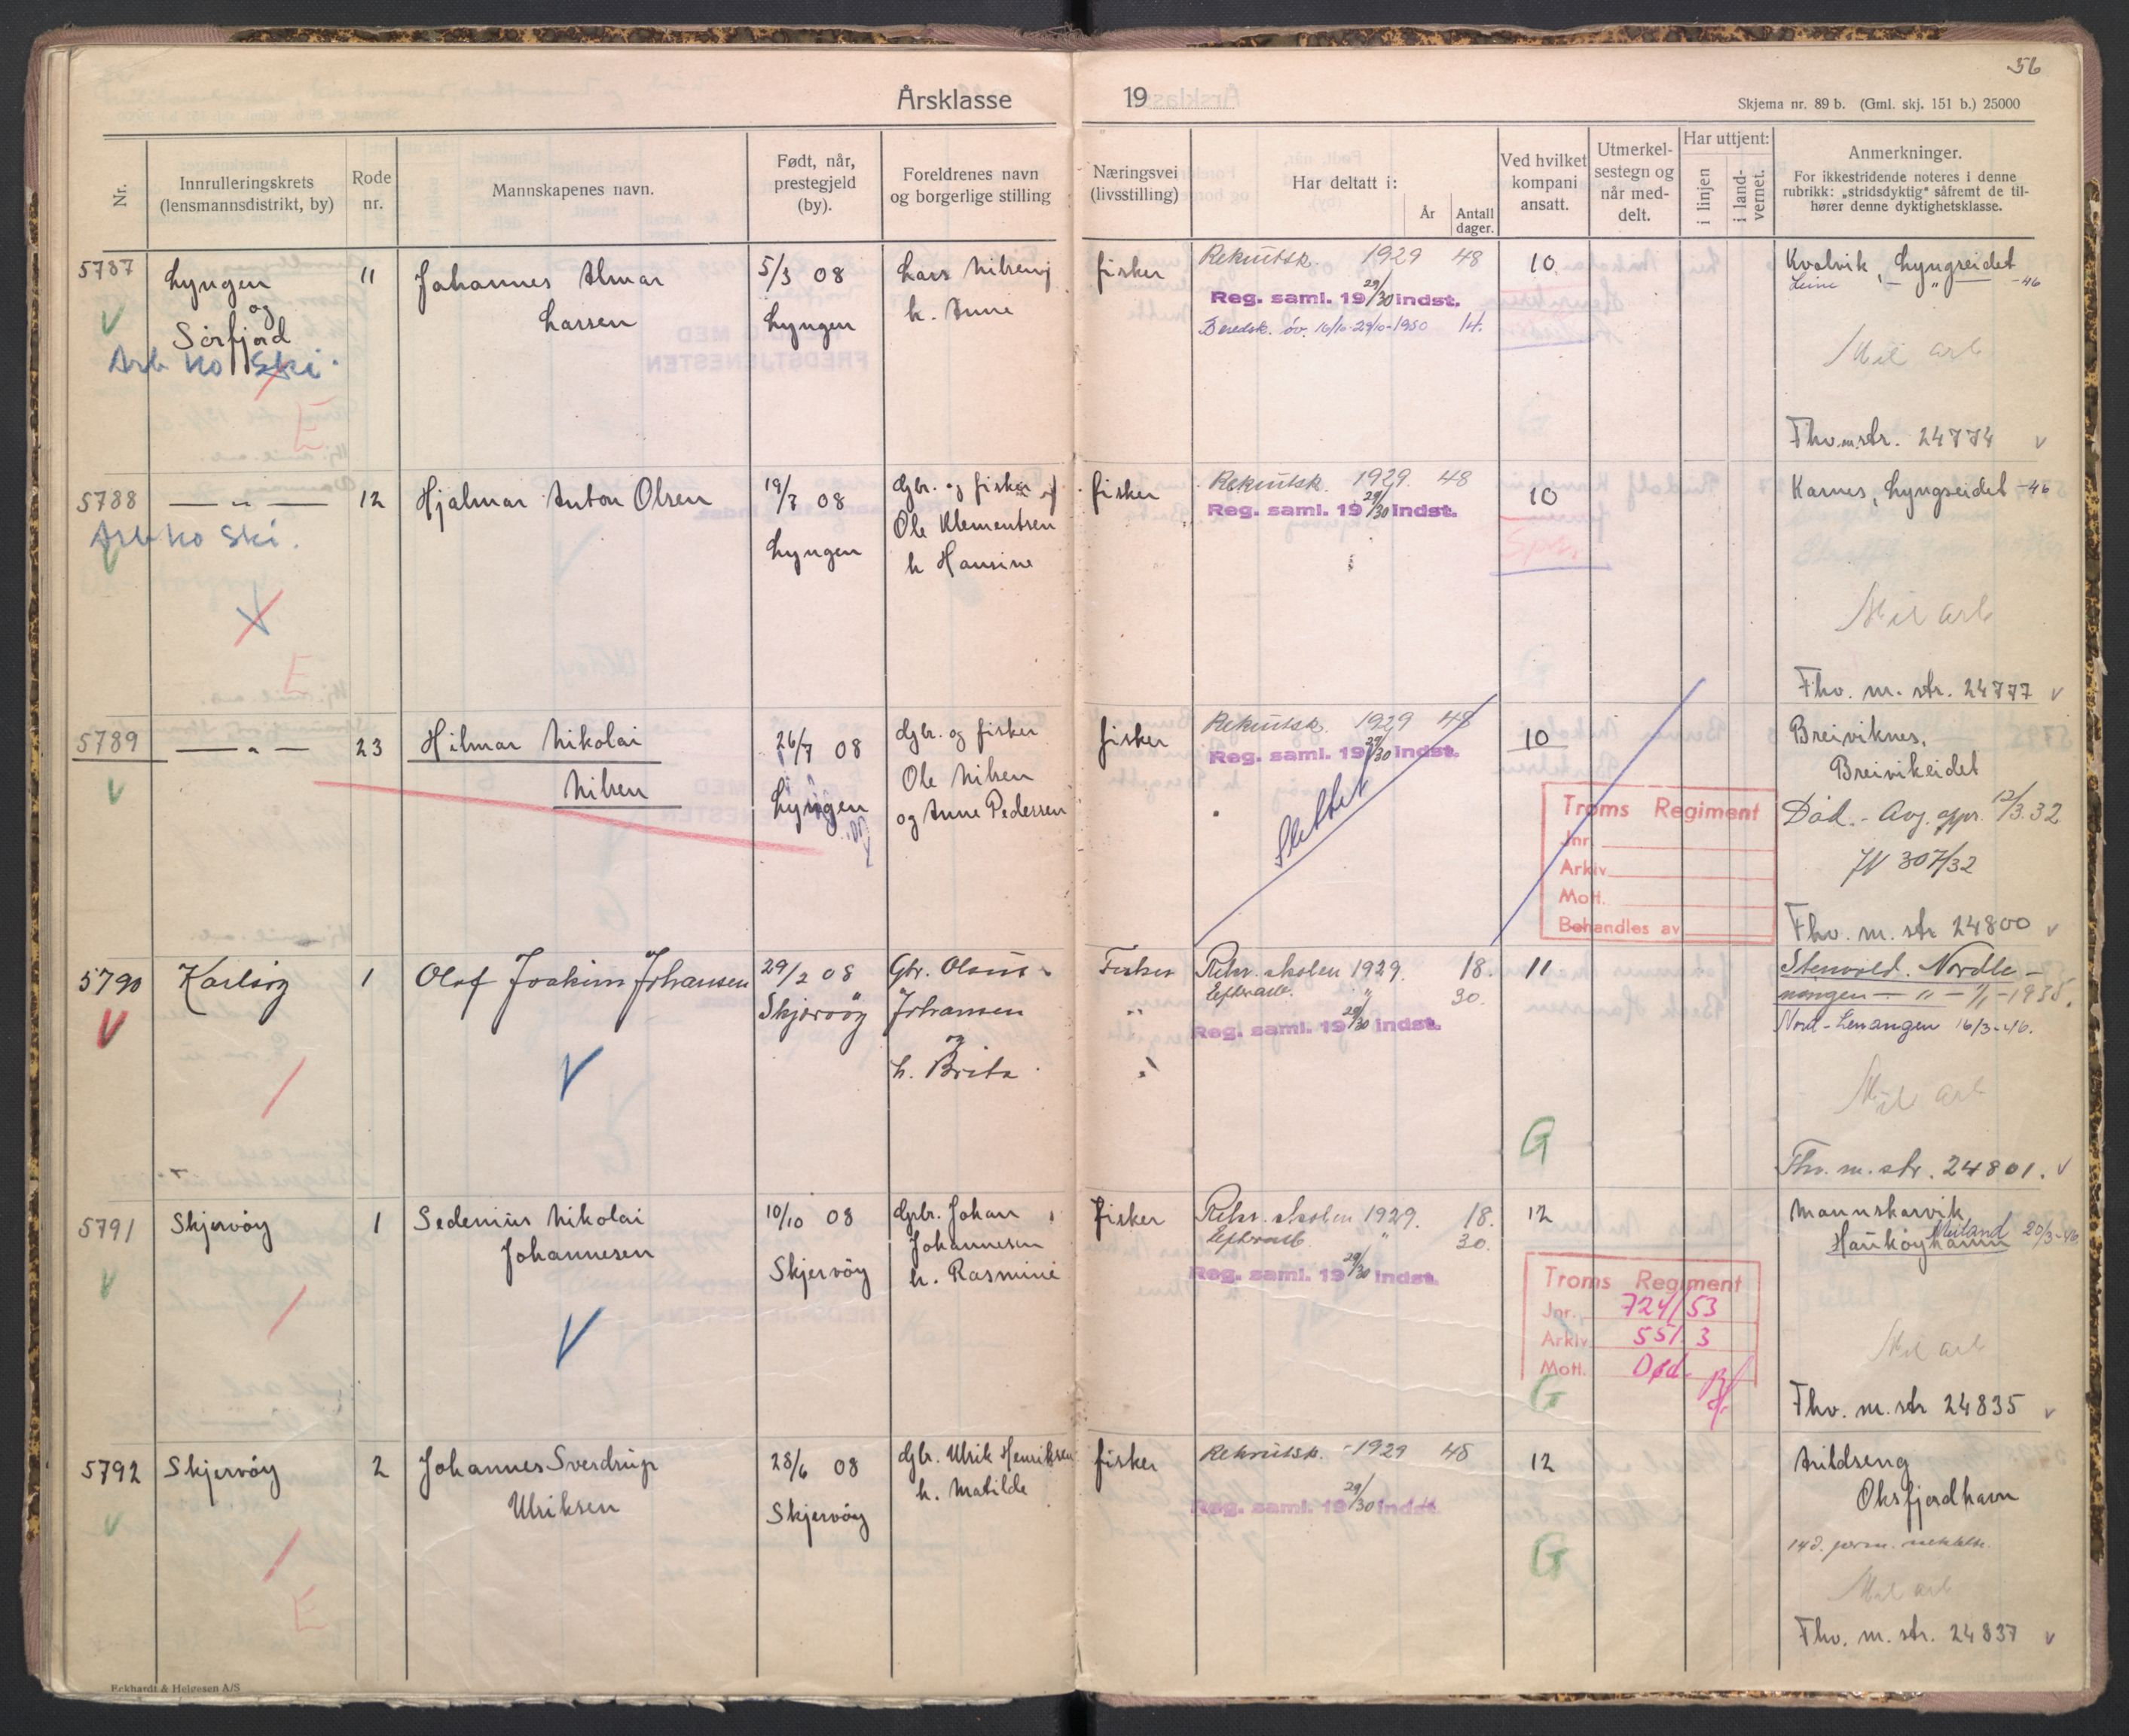 56
Årsklasse 19
Skjema nr. 89 b. (Gml. skj. 151 b.) 25000
Nr.
Innrulleringskrets
(lensmannsdistrikt, by)
Rode
nr.
Mannskapenes navn.
Født, når,
prestegjeld
(by).
Foreldrenes navn
og borgerlige stilling
Næringsvei
(livsstilling)
Har deltatt i:
År
Antall
dager.
Ved hvilket
kompani
ansatt.
Utmerkel-
sestegn og
når med-
delt.
Har uttjent:
i linjen
i land-
vernet.
Anmerkninger.
For ikkestridende noteres i denne
rubrikk: „stridsdyktig" såfremt de til-
hører denne dyktighetsklasse.
5787
Lyngen
og
Sørfjord
Arb ko Ski.
E
11
Johannes Almar
Larsen
5/3 08
Lyngen
Lars Nilsen
h. Anne
fisker
Rekrutsk. 1929 48
Reg. saml. 19 29/30 indst.
Beredsk. öv. 16/10-29/10-1950 14.
10
Kvalvik, Lyngseidet
-46
Mil arb
Fhv. m. str. 24774 v
5788
— „ —
Arb ko Ski.
E
12
Hjalmar Anton Olsen
19/7 08
Lyngen
Gbr. og fisker
Ole Klementsen
h Hansine
fisker
Rekrutsk. 1929 48
Reg. saml. 19 29/30 indst.
10
Karnes, Lyngseidet -46
Mil arb
Fhv. m. str. 24777 v
5789
— „ —
23
Hilmar Nikolai
Nilsen
26/7 08
Lyngen
Gbr. og fisker
Ole Nilsen
og Anne Pedersen
fisker
Rekrutsk. 1929 48
Reg. saml. 19 29/30 indst.
Slettet
10
Troms Regiment
Jnr.
Arkiv
Mott.
Behandles av
Breiviknes,
Breivikeidet
Död. - Avg. appr. 12/3.32
JN 307/32
Fhv. m. str 24800 v
5790
Karlsöy
1
Olaf Joakim Johansen
29/2 08
Skjervöy
Gbr. Olaus
Johansen
og
h. Brita
Fisker
Rekr. skolen 1929. 18.
Efterarb. „ 30.
Reg. saml. 19 29/30 indst.
11
G
Stenvold. Nordle-
ningen — „ — 1/1-1935.
Nord-Lenangen 16/3-46.
Mil arb
Fhv. m. str. 24801. v
5791
Skjervöy
1
Sedenius Nikolai
Johannesen
10/10 08
Skjervöy
Gbr. Johan
Johannesen
h. Rasmine
fisker
Rekr. skolen 1929. 18.
Efterarb. „ 30.
Reg. saml. 19 29/30 indst.
12
Troms Regiment
Jnr. 724/53
Arkiv 551.3
Mott. Død.
G
Mannskarvik
Hauköyhamn
Meiland 20/3-46
Mil arb
Fhv. m. str 24835 v
5792
Skjervöy
E
2
Johannes Sverdrup
Ulriksen
28/6 08
Skjervöy
Gbr. Ulrik Henriksen
h. Matilde
fisker
Rekrutsk. - 1929 48
Reg. saml. 19 29/30 indst.
12
G
Arildseng
Oksfjordhavn
Mil arb
Fhv. m. str. 24837 v
Eckhardt & Helgesen A/S